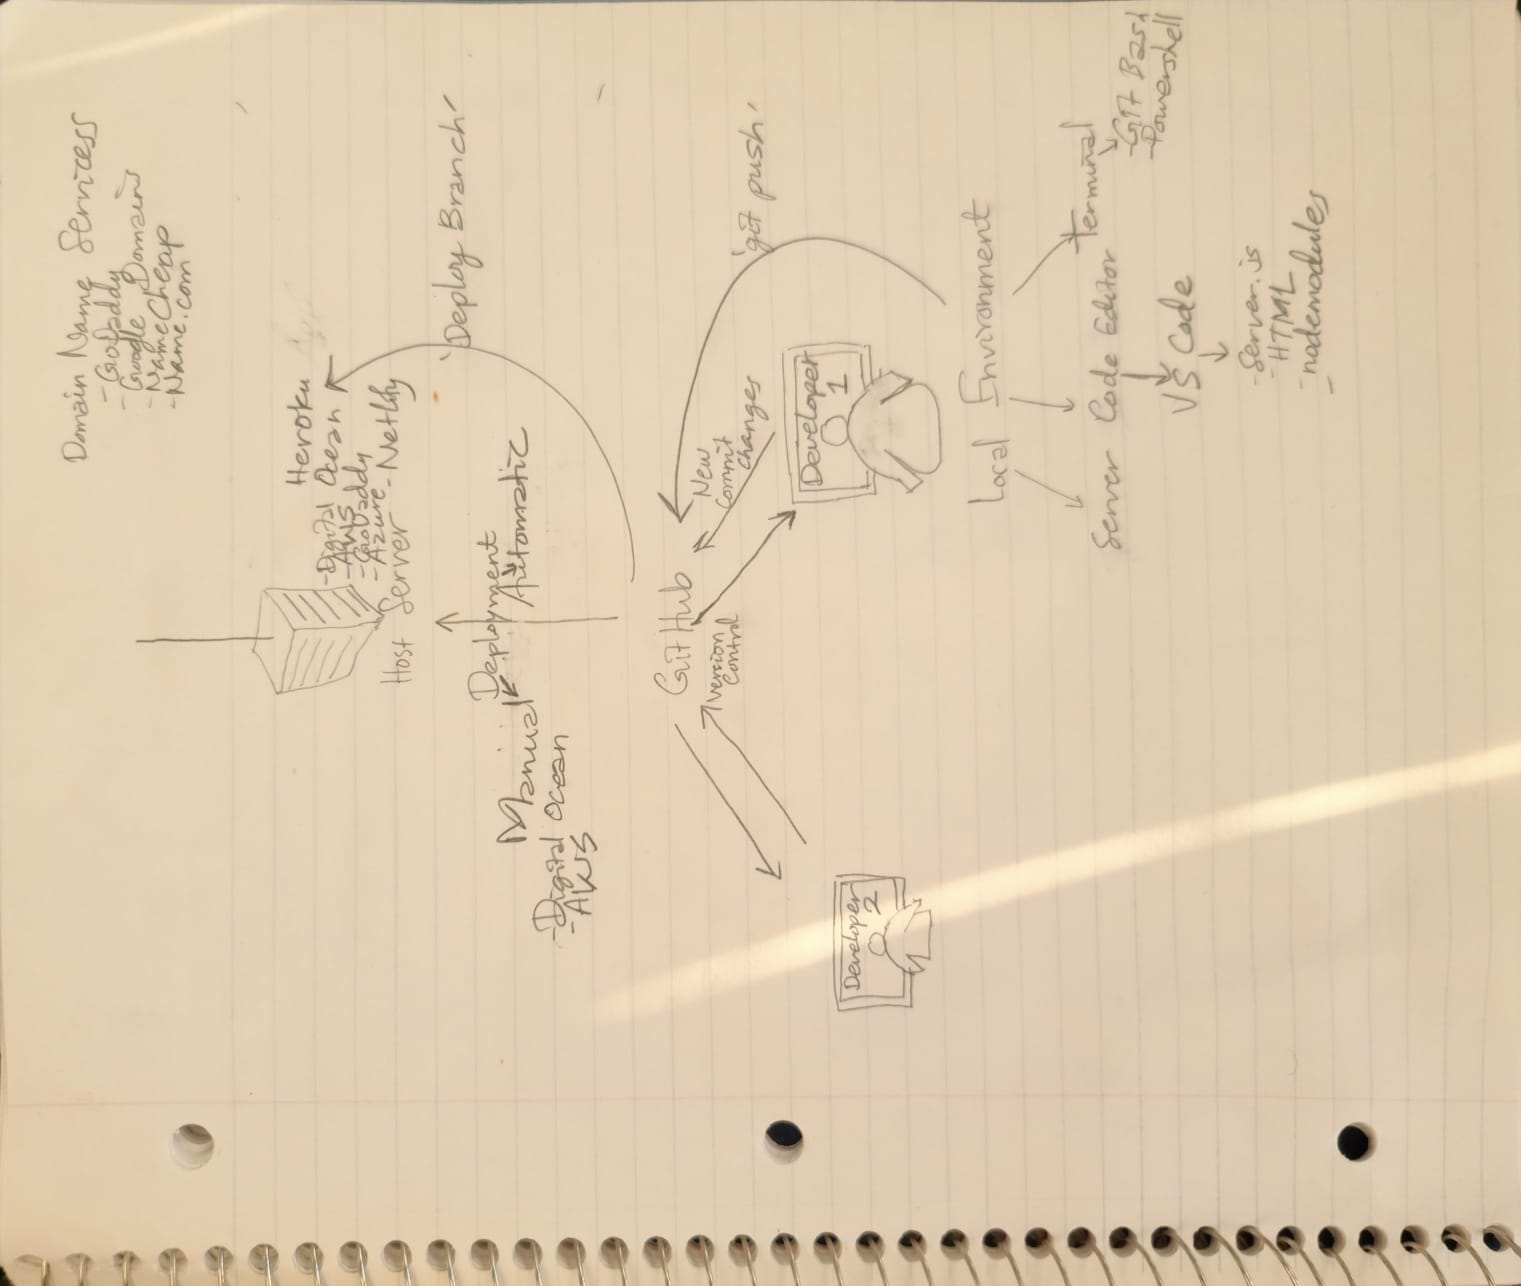 Domain Name Services
- GoDaddy
- Google Domains
- NameCheap
- Name.com
Heroku
- Digital Ocean
- AWS
- GoDaddy
- Azure - Netlify
Host Server
'Deploy Branch'
Deployment
Manual
Automatic
- Digital Ocean
- AWS
GitHub
Version
Control
New
Commit
Changes
'git push'
Developer
1
Developer
2
Local Environment
Server
Code Editor
Terminal
- Git Bash
- Powershell
VS Code
- Server.js
- HTML
- nodemodules
-